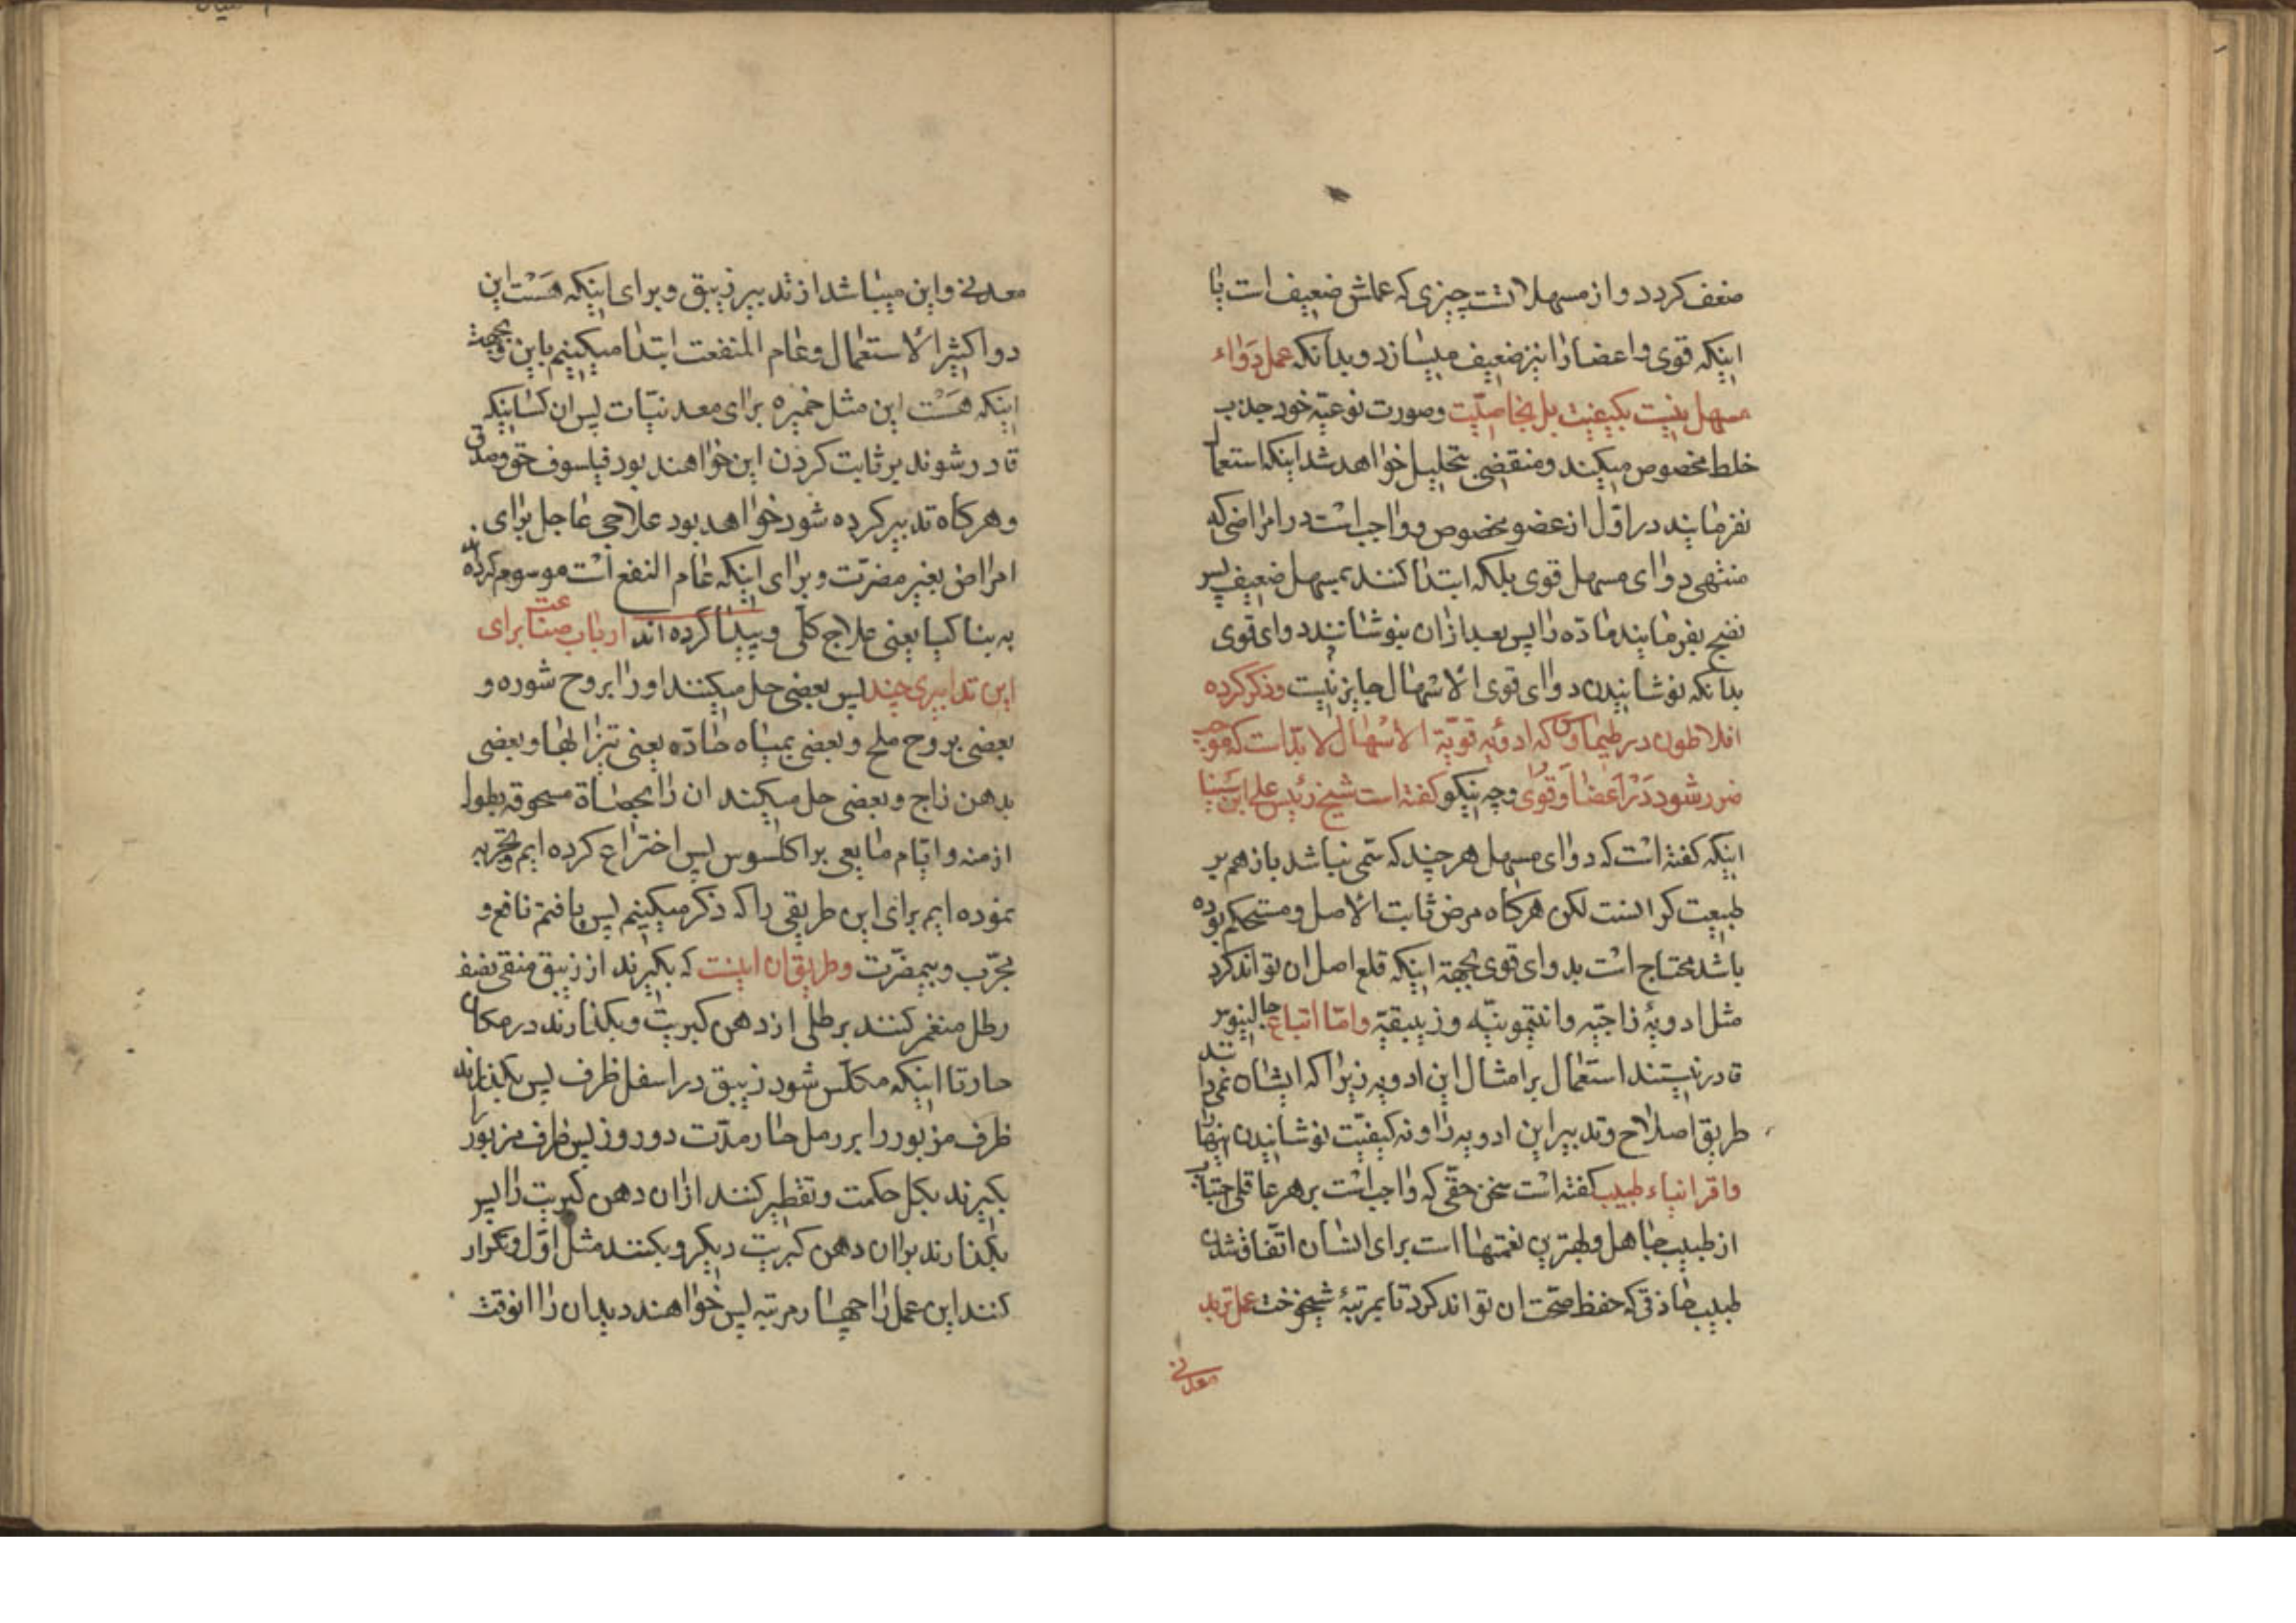 ضعف کردد و از مسهلاتست چیزی که عملش ضعیف است یا
اینکه قوی و اعضا را نیز ضعیف میسازد و بدانکه عمل دواء
مسهل نیست بکیفیت بل بخاصیّت و صورت نوعیّه خود جذب
خلط مخصوص میکند و منقضی بتحلیل خواهد شد اینکه استعمال
نفرمایند در اوّل از عضو مخصوص و واجب است در امراضی که
منتهی دوای مسهل قوی بلکه ابتدا کنند بمسهل ضعیف پس
نضج بفرمایند مادّه را پس بعد از ان بنوشانند دوای قوی
بدانکه نوشانیدن دوای قوی الاسهال جایز نیست و ذکر کرده
افلاطون در طیماوس که ادویه قویّة الاسهال لابدّ است که موجب
ضرر شود در اعضا و قوی و چه نیکو کفته است شیخ رئیس علی ابن سینا
اینکه کفته است که دوای مسهل هر چند که سمی نباشد باز هم بر
طبیعت کرانست لکن هرکاه مرض ثابت الاصل و مستحکم بوده
باشد محتاج است بدوای قوی بجهة اینکه قلع اصل ان تواند کرد
مثل ادویۀ زاجیّه و انتیمونیّه و زیبقیّه و امّا اتباع جالینوس
قادر نیستند استعمال بر امثال این ادویه زیرا که ایشان نمیدانند
طریق اصلاح و تدبیر این ادویه را و نه کیفیّت نوشانیدن اینها را
و اقرانیاء طبیب کفته است سخن حقّی که واجب است بر هر عاقلی اجتناب
از طبیب جاهل و بهترین نعمتها است برای انسان اتّفاق شدن
طبیب حاذقی که حفظ صحّت ان تواند کرد تا بمرتبۀ شیخوخت عمل تربد
معدنی
معدنی و این میباشد از تدبیر زیبق و برای اینکه هست این
دوا کثیر الاستعمال و عام المنفعت ابتدا میکنیم باین و بجهت
اینکه هست این مثل خمیره برای معدنیّات پس ان کسانیکه
قادر شوند بر ثابت کردن این خواهند بود فیلسوف حق و مدقق
و هرکاه تدبیر کرده شود خواهد بود علاجی عاجل برای
امراض بغیر مضرّت و برای اینکه عام النفع است موسوم کرده‌اند
به بناکیا یعنی علاج کلّی و پیدا کرده اند ارباب صناعت برای
این تدابیری چند پس بعضی حل میکنند او را بروح شوره و
بعضی بروح ملح و بعضی بمیاه حادّه یعنی تیزابها و بعضی
بدهن زاج و بعضی حل میکنند ان را بحصاة مسحوقه بطول
ازمنه و ایّام مایعی براکلسوس پس اختراع کرده ایم و تجربه
نموده ایم برای این طریقی را که ذکر میکنیم پس یافتم نافع و
مجرّب و بیمضرّت و طریق ان اینست که بکیرند از زیبق منقی نصف
رطل منغمر کنند برطلی از دهن کبریت و بکذارند در مکان
حار تا اینکه مکلّس شود زیبق در اسفل ظرف پس بکذارند
ظرف مزبور را بر رمل حار مدّت دو روز پس ظرف مزبور را
بکیرند بکل حکمت و تقطیر کنند از ان دهن کبریت را پس
بکذارند بر ان دهن کبریت دیکر و بکنند مثل اوّل و تکرار
کنند این عمل را چهار مرتبه پس خواهند دید ان را انوقت